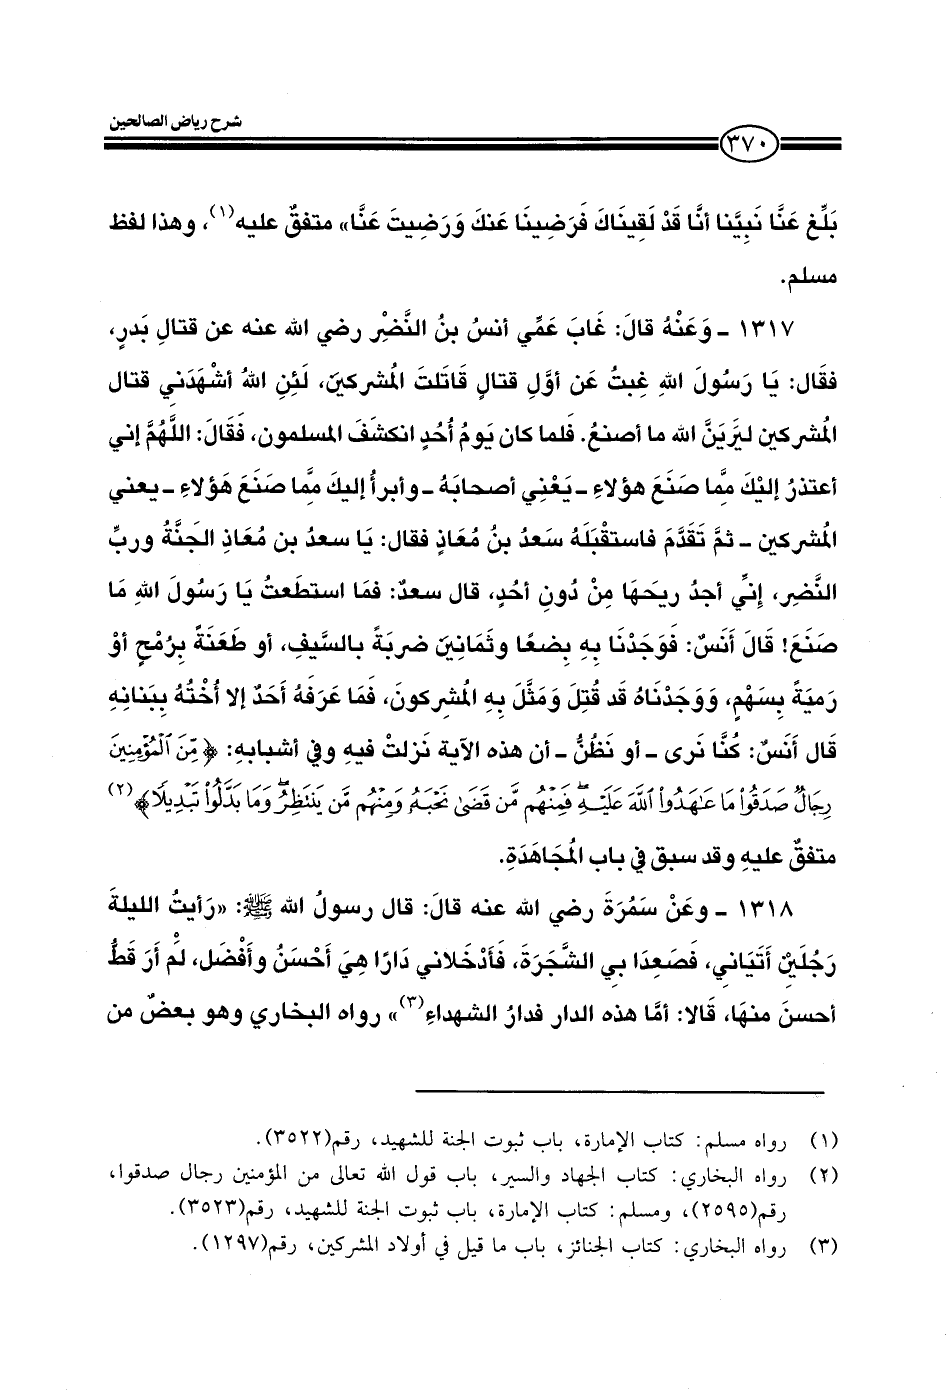 شرح رياض الصالحين
٣٧٠
بَلِّغ عَنَّا نَبِيَّنا أنَّا قَدْ لَقِينَاكَ فَرَضِينَا عَنكَ وَرَضِيتَ عَنَّا» متفقٌ عليه(١)، وهذا لفظ
مسلم.
١٣١٧ ـ وَعَنْهُ قالَ: غَابَ عَمِّي أنسُ بنُ النَّضْرِ رضي الله عنه عن قتالِ بَدرٍ،
فقَال: يَا رَسُولَ اللهِ غِبتُ عَن أوَّلِ قتالٍ قَاتَلتَ المُشركينَ، لَئِنِ اللهُ أشْهَدَني قتال
المُشركين ليَرَيَنَّ الله ما أصنعُ. فَلما كان يَومُ أُحُدٍ انكشَفَ المسلمون، فَقَالَ: اللَّهُمَّ إني
أعتذرُ إليْكَ مِمَّا صَنَعَ هؤلاءِ ـ يَعْنِي أصحابَهُ ـ وأبرأُ إليكَ مِمَّا صَنَعَ هَؤلاءِ ـ يعني
المُشركين ـ ثمَّ تَقَدَّمَ فاستقْبَلَهُ سَعدُ بنُ مُعَاذٍ فقال: يَا سعدُ بن مُعَاذٍ الجَنَّةُ وربِّ
النَّضرِ، إنِّي أجدُ ريحَهَا مِنْ دُونِ أحُدٍ، قال سعدٌ: فمَا استطَعتُ يَا رَسُولَ اللهِ مَا
صَنَعَ! قَالَ أَنَسٌ: فَوَجَدْنَا بهِ بِضعًا وثَمَانِينَ ضربَةً بالسَّيفِ، أو طَعَنَةً برُمْحٍ أوْ
رَميَةً بِسَهْمٍ، وَوَجَدْنَاهُ قد قُتِلَ وَمَثَّلَ بهِ المُشركونَ، فَمَا عَرَفَهُ أحَدٌ إلا أخْتُهُ بِبَنانِهِ
قال أَنَسٌ: كُنَّا نَرى ـ أو نَظُنُّ ـ أن هذه الآية نَزلتْ فيهِ وفي أشبابهِ: ﴿مِّنَ ٱلْمُؤْمِنِينَ
رِجَالٌ صَدَقُوا۟ مَا عَـٰهَدُوا۟ ٱللَّهَ عَلَيْهِ ۖ فَمِنْهُم مَّن قَضَىٰ نَحْبَهُۥ وَمِنْهُم مَّن يَنتَظِرُ ۖ وَمَا بَدَّلُوا۟ تَبْدِيلًا﴾(٢)
متفقٌ عليهِ وقد سبق في باب المُجَاهَدَةِ.
١٣١٨ ـ وعَنْ سَمُرَةَ رضي الله عنه قالَ: قال رسولُ الله ﷺ: «رَأيتُ الليلةَ
رَجُلَيْنِ أتَيَاني، فَصَعِدَا بي الشَّجَرَةَ، فَأدْخَلاني دَارًا هِيَ أحْسَنُ وأفْضَل، لَمْ أرَ قَطُّ
أحسنَ منهَا، قَالا: أمَّا هذه الدار فدارُ الشهداءِ(٣)» رواه البخاري وهو بعضٌ من
(١) رواه مسلم: كتاب الإمارة، باب ثبوت الجنة للشهيد، رقم(٣٥٢٢).
(٢) رواه البخاري: كتاب الجهاد والسير، باب قول الله تعالى من المؤمنين رجال صدقوا،
رقم(٢٥٩٥)، ومسلم: كتاب الإمارة، باب ثبوت الجنة للشهيد، رقم(٣٥٢٣).
(٣) رواه البخاري: كتاب الجنائز، باب ما قيل في أولاد المشركين، رقم(١٢٩٧).